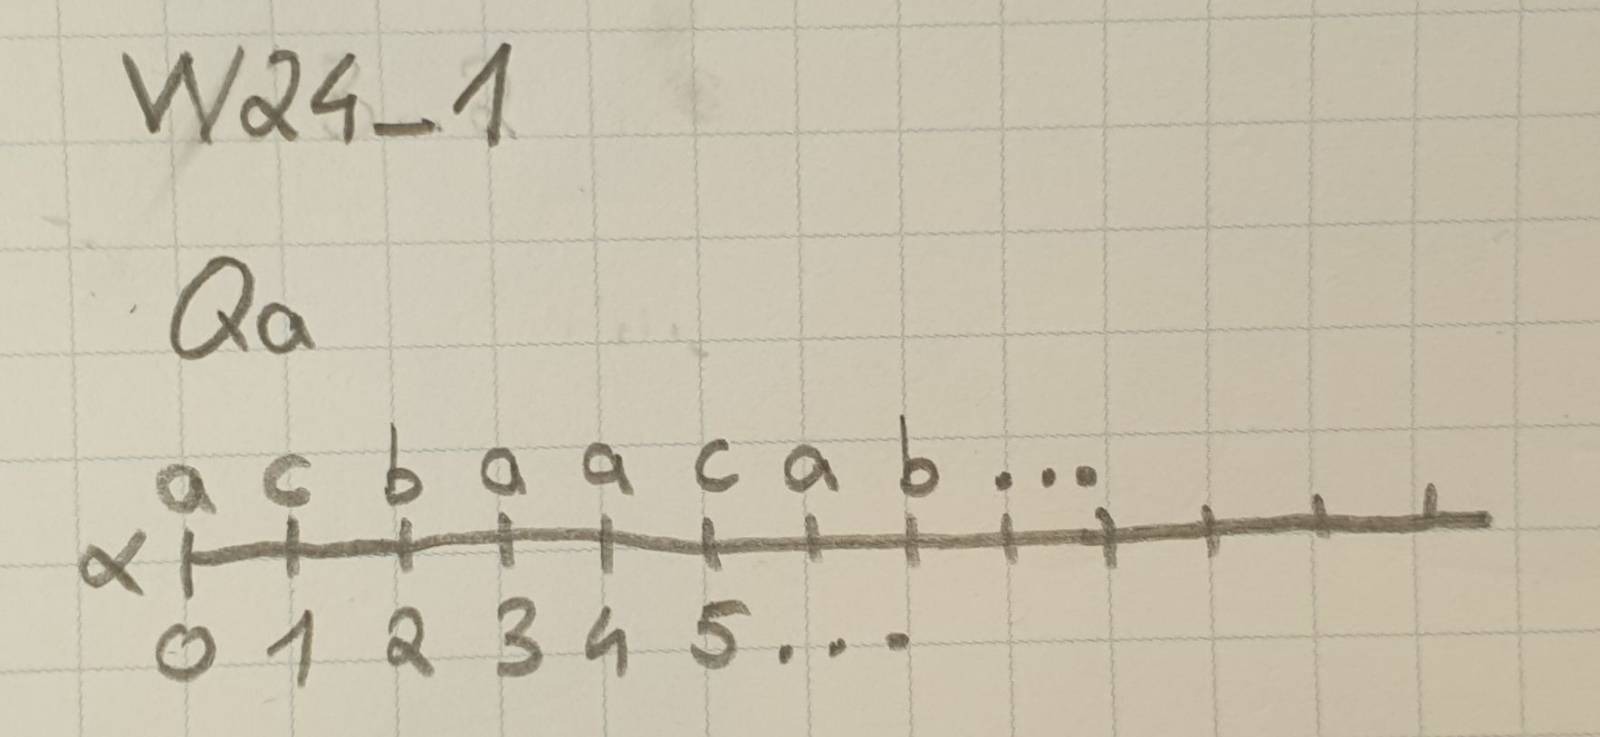 W24_1
Qa
a c b a a c a b ...
α
0 1 2 3 4 5 ...